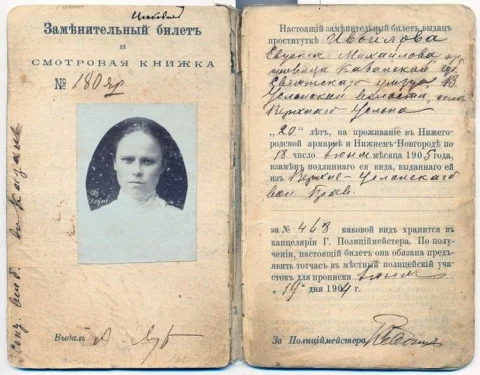 Замѣнительный билетъ
и
СМОТРОВАЯ КНИЖКА
№ 180 яр
Выдалъ
Настоящій замѣнительный билетъ выданъ
проституткѣ Ивойлова
Евдокія Михайлова кр
Казанской губ
Свіяжскаго уѣзда В
Услонской волости, села
Верхняго Услона
„20" лѣтъ, на проживаніе въ Нижего-
родской ярмаркѣ и Нижнемъ-Новгородѣ по
18 число Іюня мѣсяца 1905 года,
взамѣнъ подлиннаго ея вида, выданнаго ей
изъ Верхне-Услонскаго
вол Прав.
за № 468 каковой видъ хранится въ
канцеляріи Г. Полиціймейстера. По полу-
ченіи, настоящій билетъ она обязана предъ-
явить тотчасъ въ мѣстный полицейскій уча-
стокъ для прописки Іюня
„19" дня 1904 г.
За Полиціймейстера